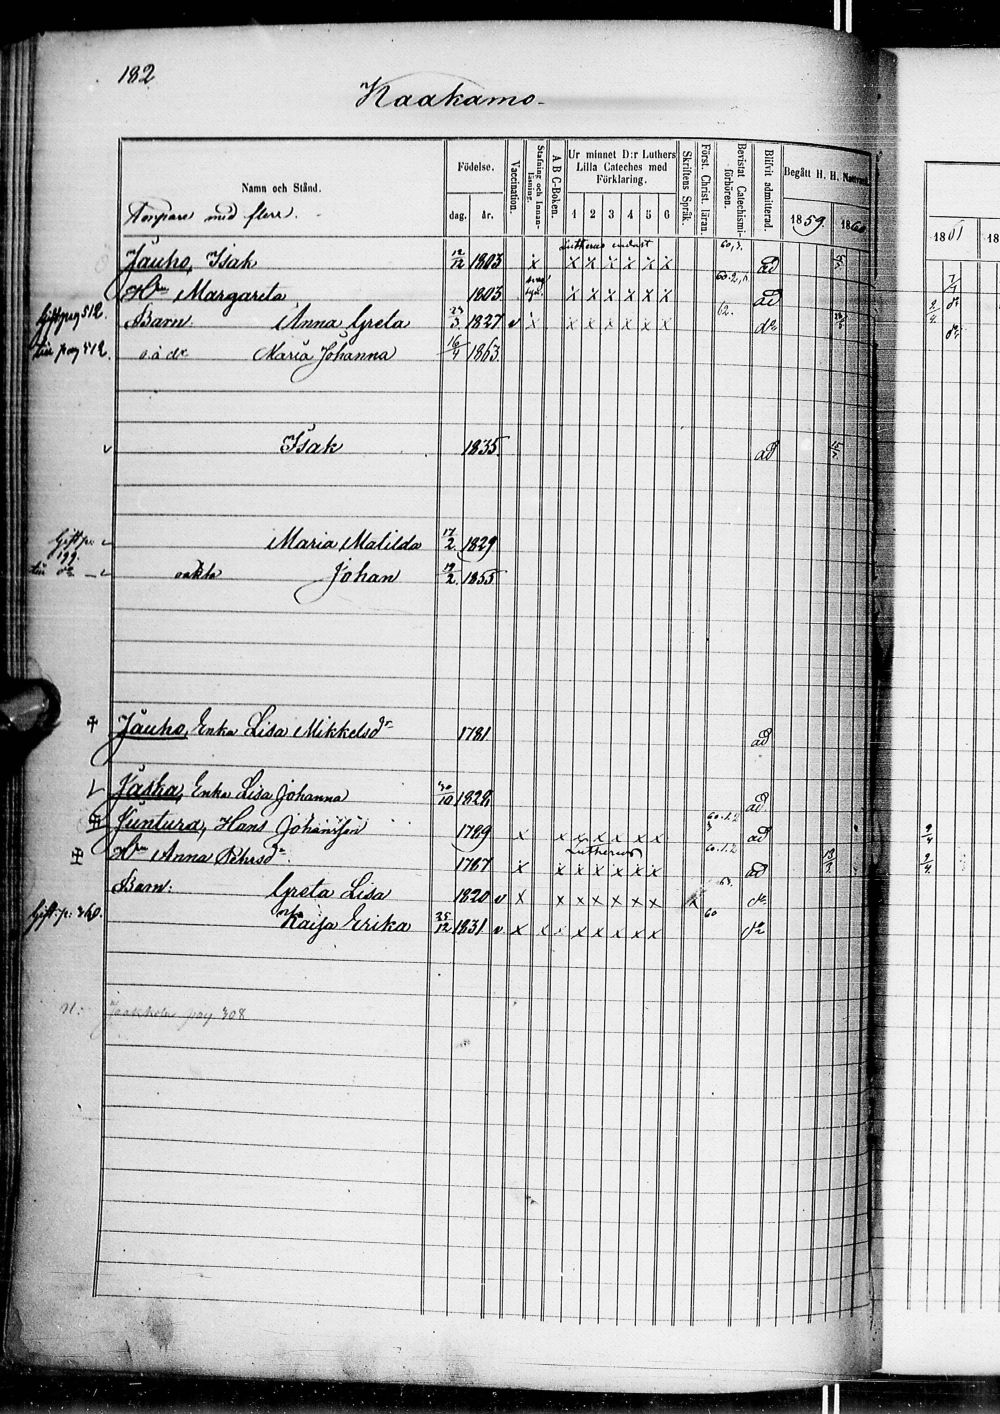 182
Kaakamo
Namn och Stånd.
Födelse.
dag. år.
Vaccination.
Stafning och Innanläsning.
A B C-Boken.
Ur minnet D:r Luthers Lilla Cateches med Förklaring.
1 2 3 4 5 6
Skriftens Språk.
Först. Christ. läran.
Bevistat Catechismiförhören.
Blifvit admitterad.
Begått H. H. Nattvard
1859. 1860
1861 18
med flere.
Lutherus endast 60,3.
Jauho, Isak 12/12 1803 x x x x x x x ad
Margareta 1803 x x x x x x ad
Giftpag 512. Barn: Anna Greta 23/3 1827 v x x x x x x x 62. do
pag 512. o ä dr Maria Johanna 16/4 1863.
Isak 1835. ad 15/3
Gift p: 199. Maria Matilda 17/2 1829
oäkta Johan 19/2 1855
Jauho, Enka Lisa Mikkelsdr 1781 ad
Enka Lisa Johanna 30/10 1828 ad
Juntura, Hans Johansson 1789 x x x x x x x 60.1.2 ad
Lutherus
Anna Pehrsdr 1787 x x x x x x x 60.1.2 ad
Barn: Greta Lisa 1820 v x x x x x x x 63. do
Gift: p: 360. Kaisa Erika 25/12 1831 v x x x x x x x x 60 do
pag 308